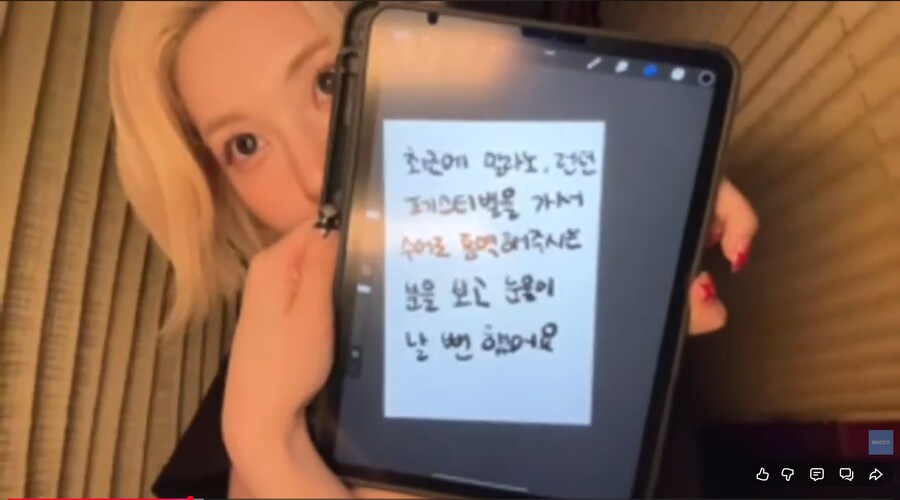 최근에 밀라노, 런던
페스티벌을 가서
수어로 통역해주시는
분을 보고 눈물이
날 뻔 했어요